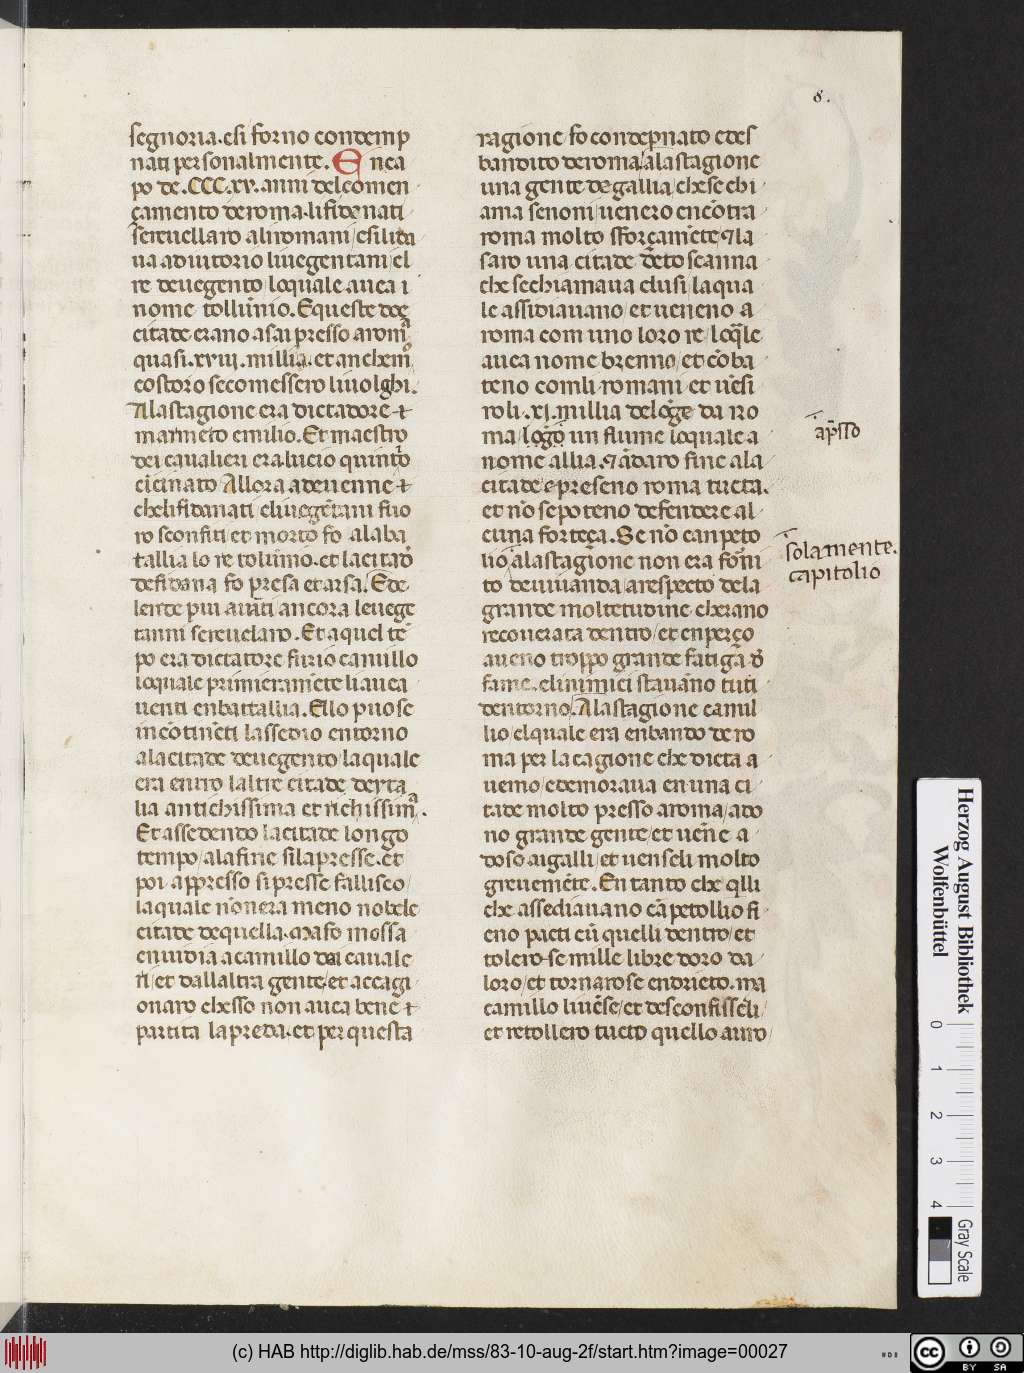 8.
segnoria. e si forno condemp
nati personalmente. En ca
po de .CCC.xv. anni del comen
çamento de roma. li fidenati
se reuellaro ali romani / e fili da
ua aduitorio li uegentani / el
re de uegento lo quale auea i
nome tollũnio. E queste doe
citade erano asai presso a romͣ
quasi .xviij. millia. et anchemͦ
costoro se comessero li uolghi.
A la stagione era dictadore ⁊
mamerco emilio. Et maestro
dei caualieri era lucio quinto
cĩcinato Allora adeuenne ⁊
che li fidanati e li uegẽtani fuo
ro sconfiti et morto fo a la ba
tallia lo re tolũnio. et la citad̃
de fidana fo presa et arsa. E de
lende piu auãti ancora le uege
tanni se reuelaro. Et a quel tẽ
po era dictatore furio camullo
lo quale primieramẽte li auea
uenti en battallia. Ello puose
incõtinẽti lassedio entorno
a la citade de uegento la quale
era entro laltre citade de yta
lia antichissima et richissimͣ.
Et assedendo la citade longo
tempo / a la fine si la presse. et
poi appresso si presse fallisco /
la quale nõn era meno nobele
citade de quella. Ma fo mossa
enuidia a camillo dai cauale
ri / et dallaltra gente / et accagi
onaro chesso non auea bene ⁊
partita la preda. et per questa
ragione fo condẽpnato e des
bandito de roma / a la stagione
una gente de gallia / che se chi
ama senoni / uenero encõtra
roma molto sforçamẽte ⁊ la
saro una citade dẽto scanna
che se chiamaua clusi / la qua
le assidiauano / et ueneno a
roma com uno loro re / lo q̃le
auea nome brenno / et cõba
teno comli romani et uẽsi
roli .xj. millia de lõge da ro
ma / logo un fiume lo quale a
nome allia. ⁊ ãdaro fine a la
citade e preseno roma tucta.
et nõ se poteno defendere al
cuna forteça. Se nõ canpeto
lio / a la stagione non era forni
to de uiuanda / a respecto de la
grande moltetudine cherano
recouerata dentro / et en perço
aueno troppo grande fatiga d̃
fame. e li nimici stauãno tuti
dentorno. A la stagione camil
lio el quale era en bando de ro
ma per la cagione che dicta a
uemo / e demoraua en una ci
tade molto presso a roma / ado
no grande gente / et uene a
doso ai galli / et uenseli molto
greuemẽte. En tanto che q̃lli
che assediauano cãpetollio fi
eno pacti cũ quelli dentro / et
tolero se mille libre doro da
loro / et tornarose endrieto. ma
camillo li uẽse / et desconfisseli /
et retollero tucto quello auro
ap̃sso
solamente.
capitolio
Herzog August Bibliothek
Wolfenbüttel
0 1 2 3 4
Gray Scale
(c) HAB http://diglib.hab.de/mss/83-10-aug-2f/start.htm?image=00027
cc BY SA